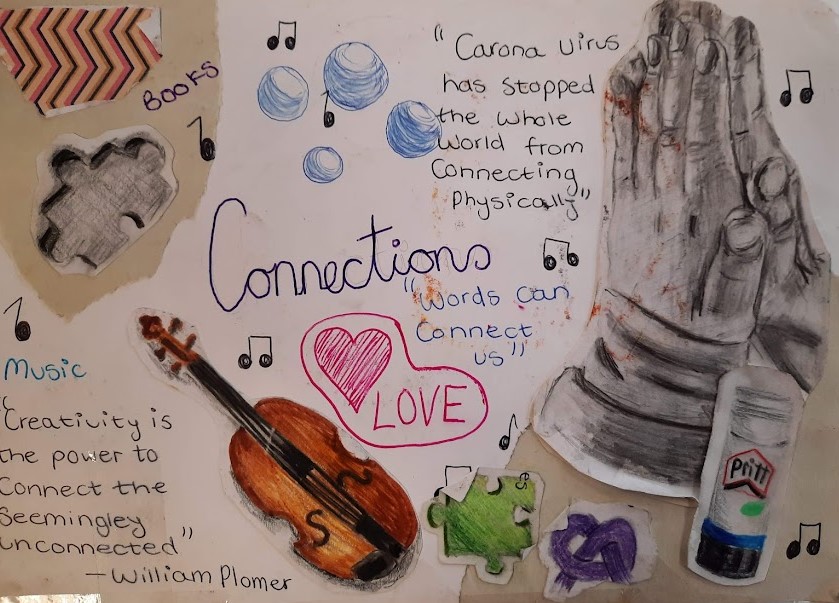 Books
"Carona Virus
has stopped
the whole
world from
Connecting
Physically"
Connections
"Words can
Connect
us"
LOVE
Music
"Creativity is
the power to
Connect the
Seemingley
unconnected"
-William Plomer
Pritt